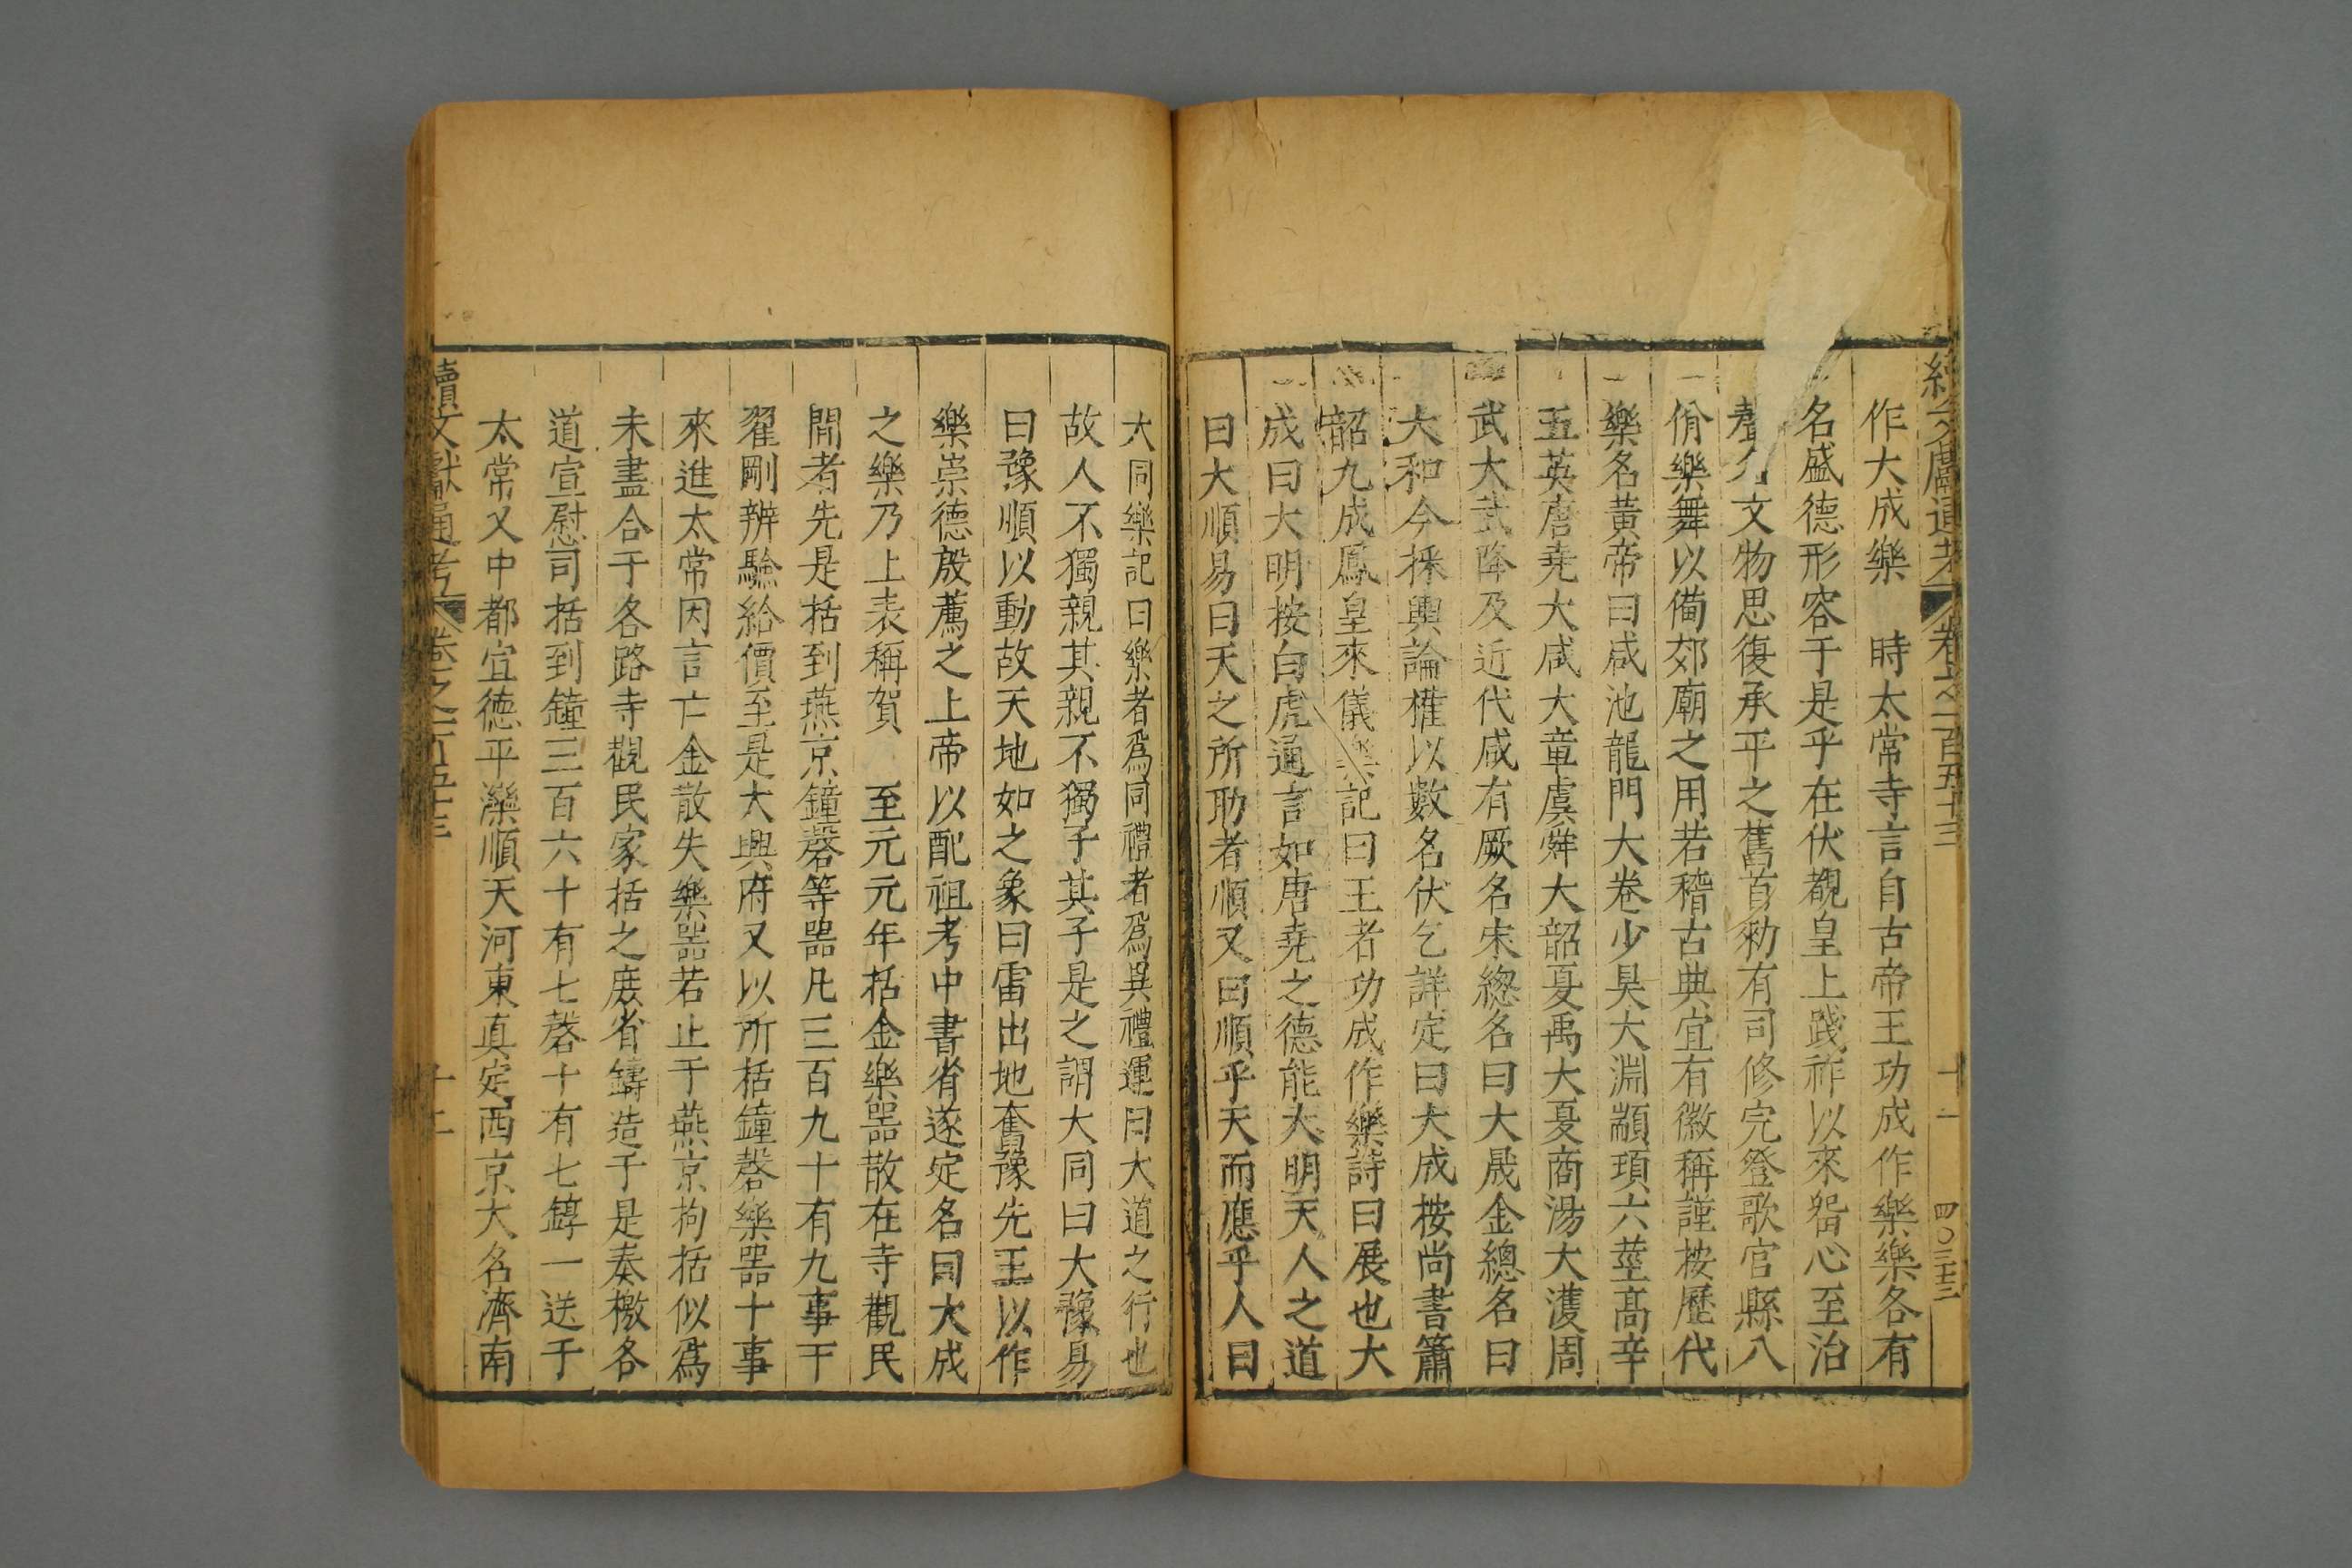 續文獻通考 卷之一百五十三 十一 四〇三三
作大成樂 時太常寺言自古帝王功成作樂樂各有
名盛德形容于是乎在伏覩皇上踐祚以來畱心至治
聲名文物思復承平之舊首勑有司修完登歌宮縣八
佾樂舞以備郊廟之用若稽古典宜有徽稱謹按歷代
樂名黃帝曰咸池龍門大卷少昊大淵顓頊六莖高辛
五英唐堯大咸大章虞舜大韶夏禹大夏商湯大濩周
武大武降及近代咸有厥名宋總名曰大晟金總名曰
大和今採輿論權以數名伏乞詳定曰大成按尚書簫
韶九成鳳皇來儀樂記曰王者功成作樂詩曰展也大
成曰大明按白虎通言如唐堯之德能大明天人之道
曰大順易曰天之所助者順又曰順乎天而應乎人曰
大同樂記曰樂者爲同禮者爲異禮運曰大道之行也
故人不獨親其親不獨子其子是之謂大同曰大豫易
曰豫順以動故天地如之象曰雷出地奮豫先王以作
樂崇德殷薦之上帝以配祖考中書省遂定名曰大成
之樂乃上表稱賀 至元元年括金樂器散在寺觀民
間者先是括到燕京鐘磬等器凡三百九十有九事干
翟剛辨驗給價至是大興府又以所括鐘磬樂器十事
來進太常因言亡金散失樂器若止于燕京拘括似爲
未盡合于各路寺觀民家括之庶省鑄造于是奏檄各
道宣慰司括到鐘三百六十有七磬十有七錞一送于
太常又中都宣德平灤順天河東眞定西京大名濟南
續文獻通考 卷之一百五十三 十二